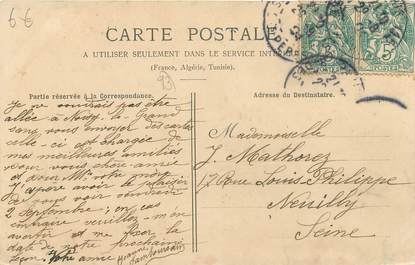 6€
CARTE POSTALE
A UTILISER SEULEMENT DANS LE SERVICE INTÉRIEUR
(France, Algérie, Tunisie).
Partie réservée à la Correspondance.
Adresse du Destinataire.
Je ne voudrais pas être
allée à Noisy-le-Grand
sans vous envoyer des cartes
celle-ci est chargée de
mes meilleures amitiés
pour vous
et pour Mr votre
J'espère avoir le plaisir
de vous voir
2 Septembre; en cas
contraire veuillez m'en
avertir et me fixer la
date de notre prochaine
leçon. Votre amie Jeanne
Mademoiselle
J. Mathorez
17 Rue Louis-Philippe
Neuilly
Seine
5
POSTES